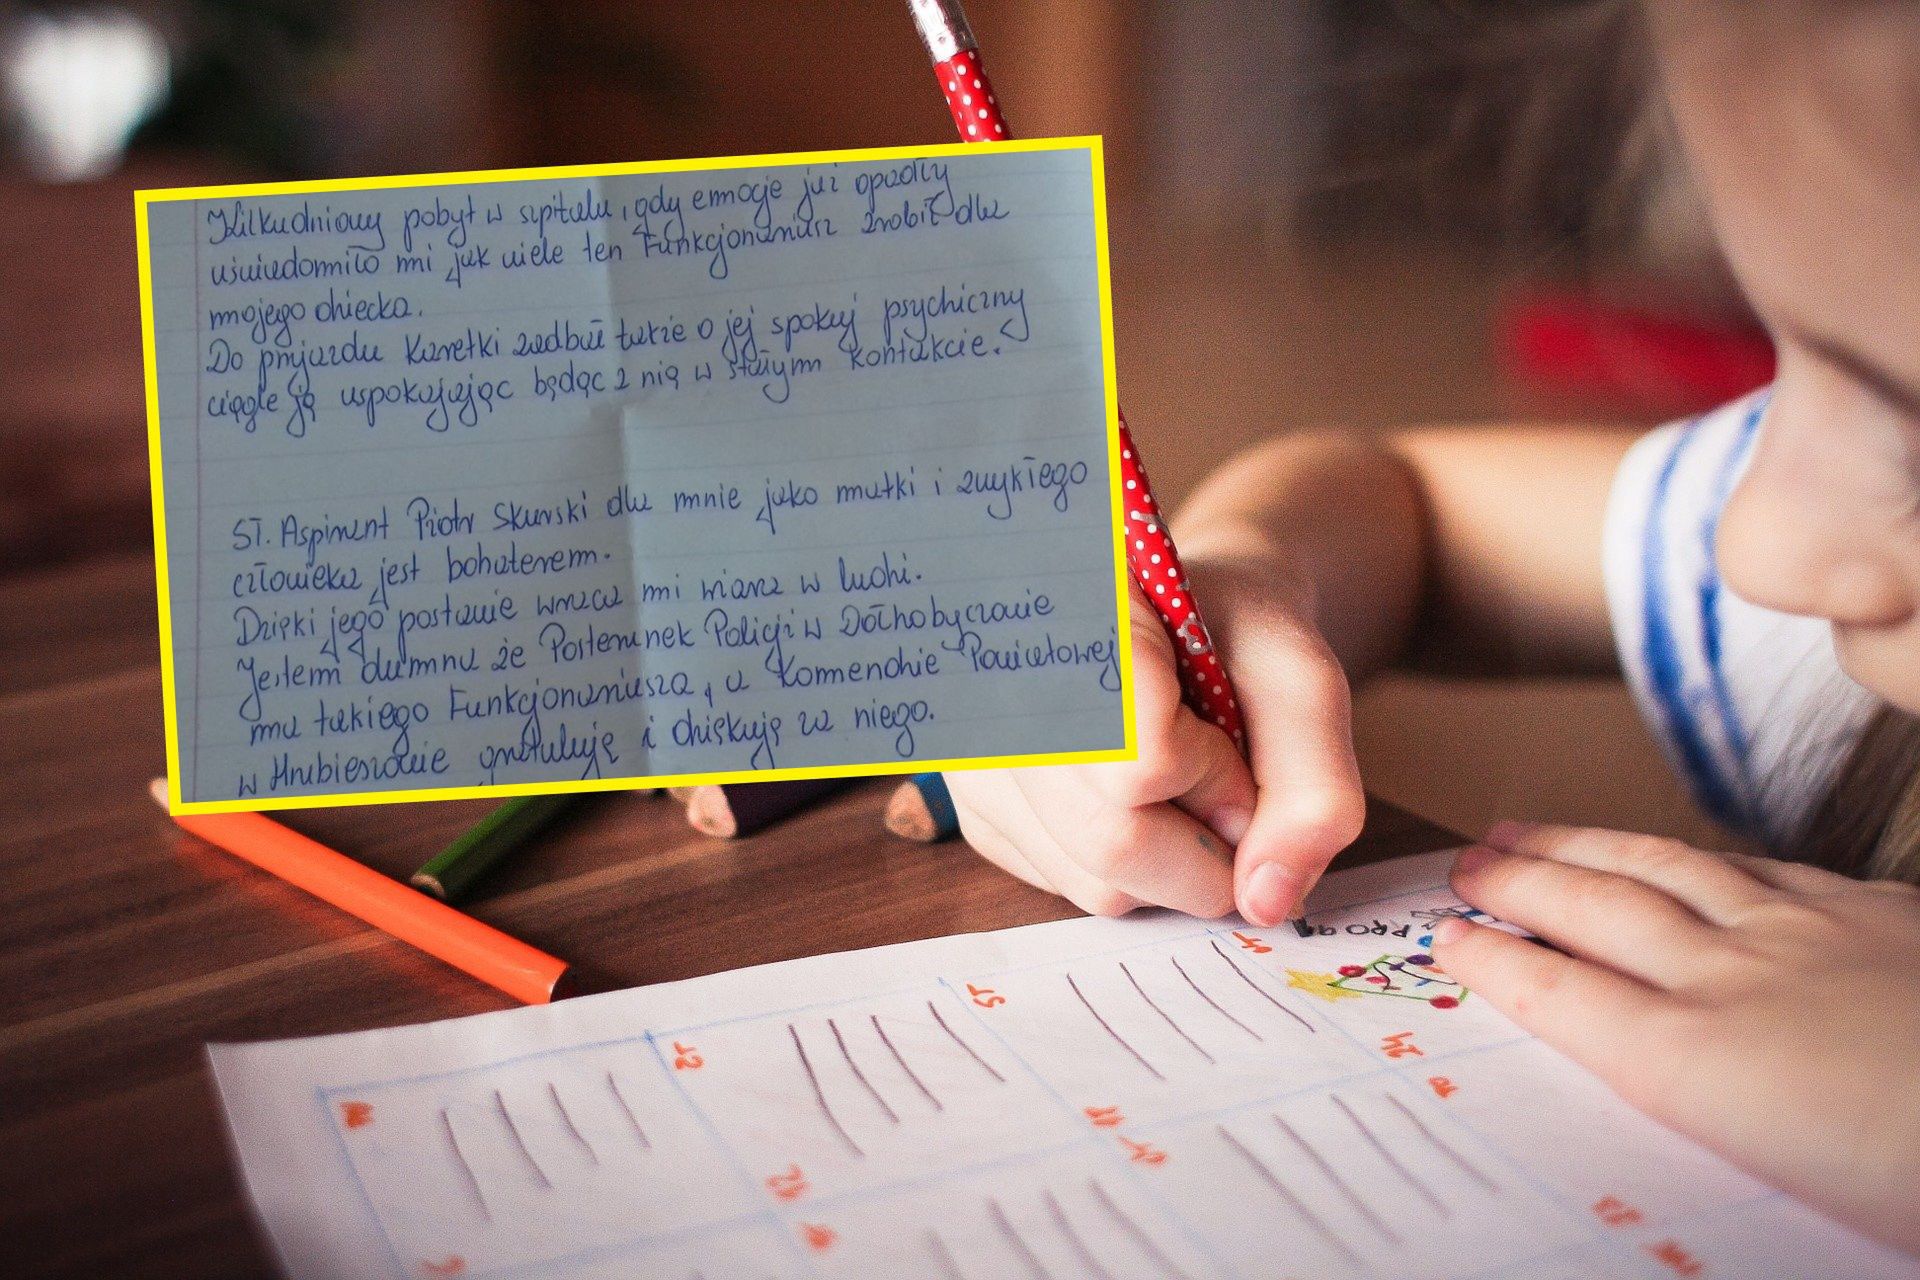 Kilkudniowy pobyt w szpitalu, gdy emocje już opadły
uświadomiło mi jak wiele ten Funkcjonariusz zrobił dla
mojego dziecka.
Do przyjazdu karetki zadbał także o jej spokój psychiczny
ciągle ją uspokajając będąc z nią w stałym kontakcie.
ST. Aspirant Piotr Skurski dla mnie jako matki i zwykłego
człowieka jest bohaterem.
Dzięki jego postawie wraca mi wiara w ludzi.
Jestem dumna że Posterunek Policji w Dołhobyczowie
ma takiego Funkcjonariusza, a Komendzie Powiatowej
w Hrubieszowie gratuluję i dziękuję za niego.